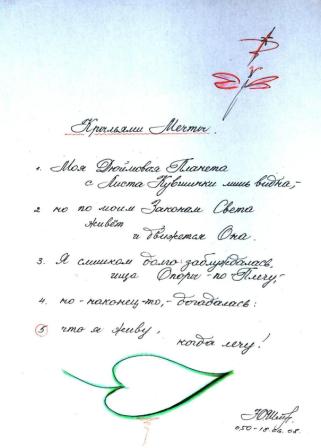 Крыльями Мечты.
1. Моя Дюймовая Планета
с Листа Кувшинки лишь видна,-
2. но по моим Законам Света
живёт
и движется Она.
3. Я слишком долго заблуждалась,
ища Опоры - по Плечу,-
4. но - наконец-то,- догадалась:
5. что я живу,
когда лечу!
050-18.02.08.